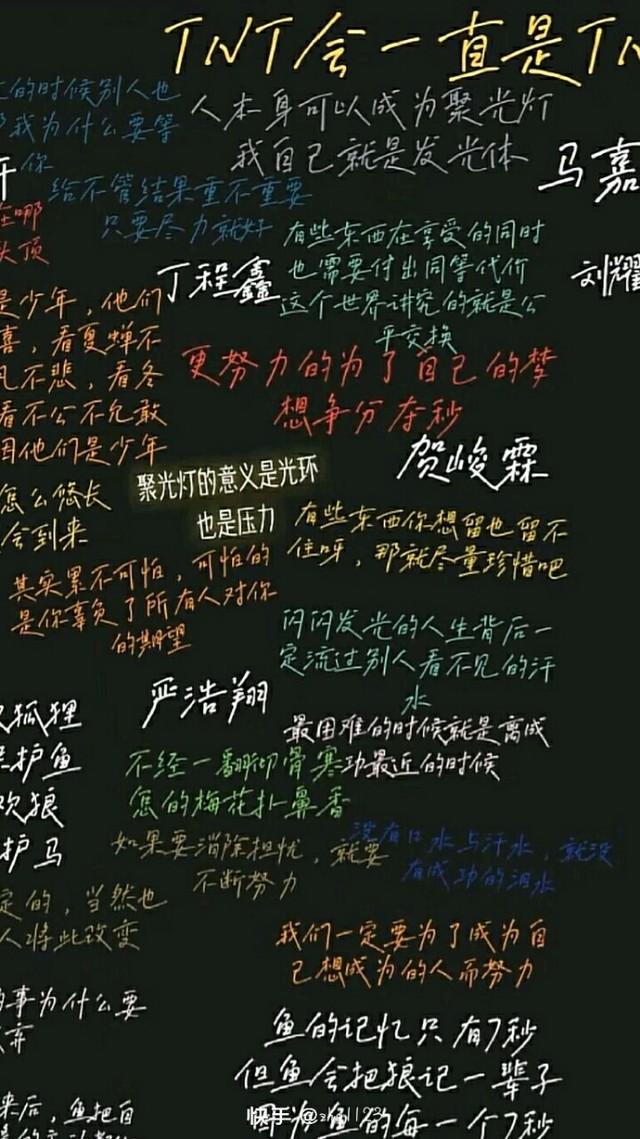 TNT会一直是TN
的时候别人也
我为什么要等
你
人本身可以成为聚光灯
我自己就是发光体
马嘉
给不管结果重不重要
只要尽力就好
在哪
头顶
有些东西在享受的同时
也需要付出同等代价
这个世界讲究的就是公
平交换
丁程鑫
刘耀
是少年，他们
喜，看夏蝉不
不悲，看冬
看不公不允敢
因他们是少年
更努力的为了自己的梦
想争分夺秒
贺峻霖
怎么悠长
会到来
聚光灯的意义是光环
也是压力
有些东西你想留也留不
住呀，那就尽量珍惜吧
其实累不可怕，可怕的
是你辜负了所有人对你
的期望
闪闪发光的人生背后一
定流过别人看不见的汗
水
严浩翔
狐狸
护鱼
欢狼
护马
最困难的时候就是离成
功最近的时候
不经一翻彻骨寒
怎的梅花扑鼻香
如果要消除担忧，就要
不断努力
没有口水与汗水，就没
有成功的泪水
定的，当然也
人将此改变
我们一定要为了成为自
己想成为的人而努力
的事为什么要
弃
鱼的记忆只有7秒
但鱼会把狼记一辈子
因为鱼的每一个7秒
来后，鱼把自
快手